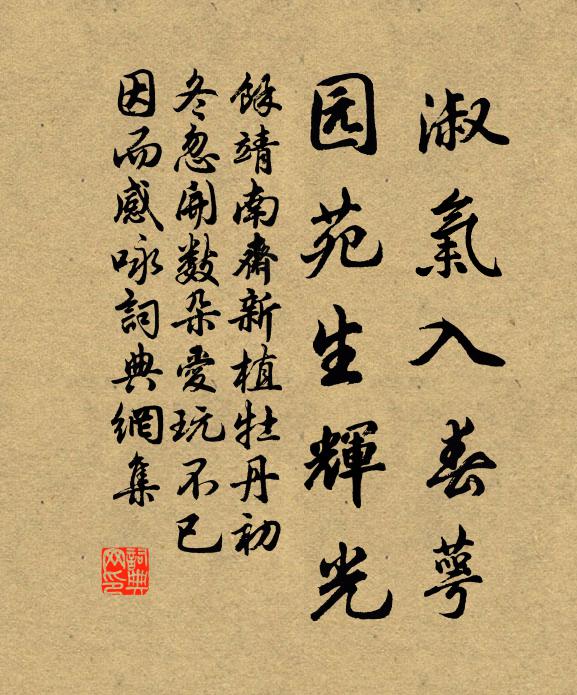 淑氣入春萼
园苑生輝光
餘靖南齋新植牡丹初
冬忽開数朵愛玩不已
因而感咏詞典網集
詞典网印